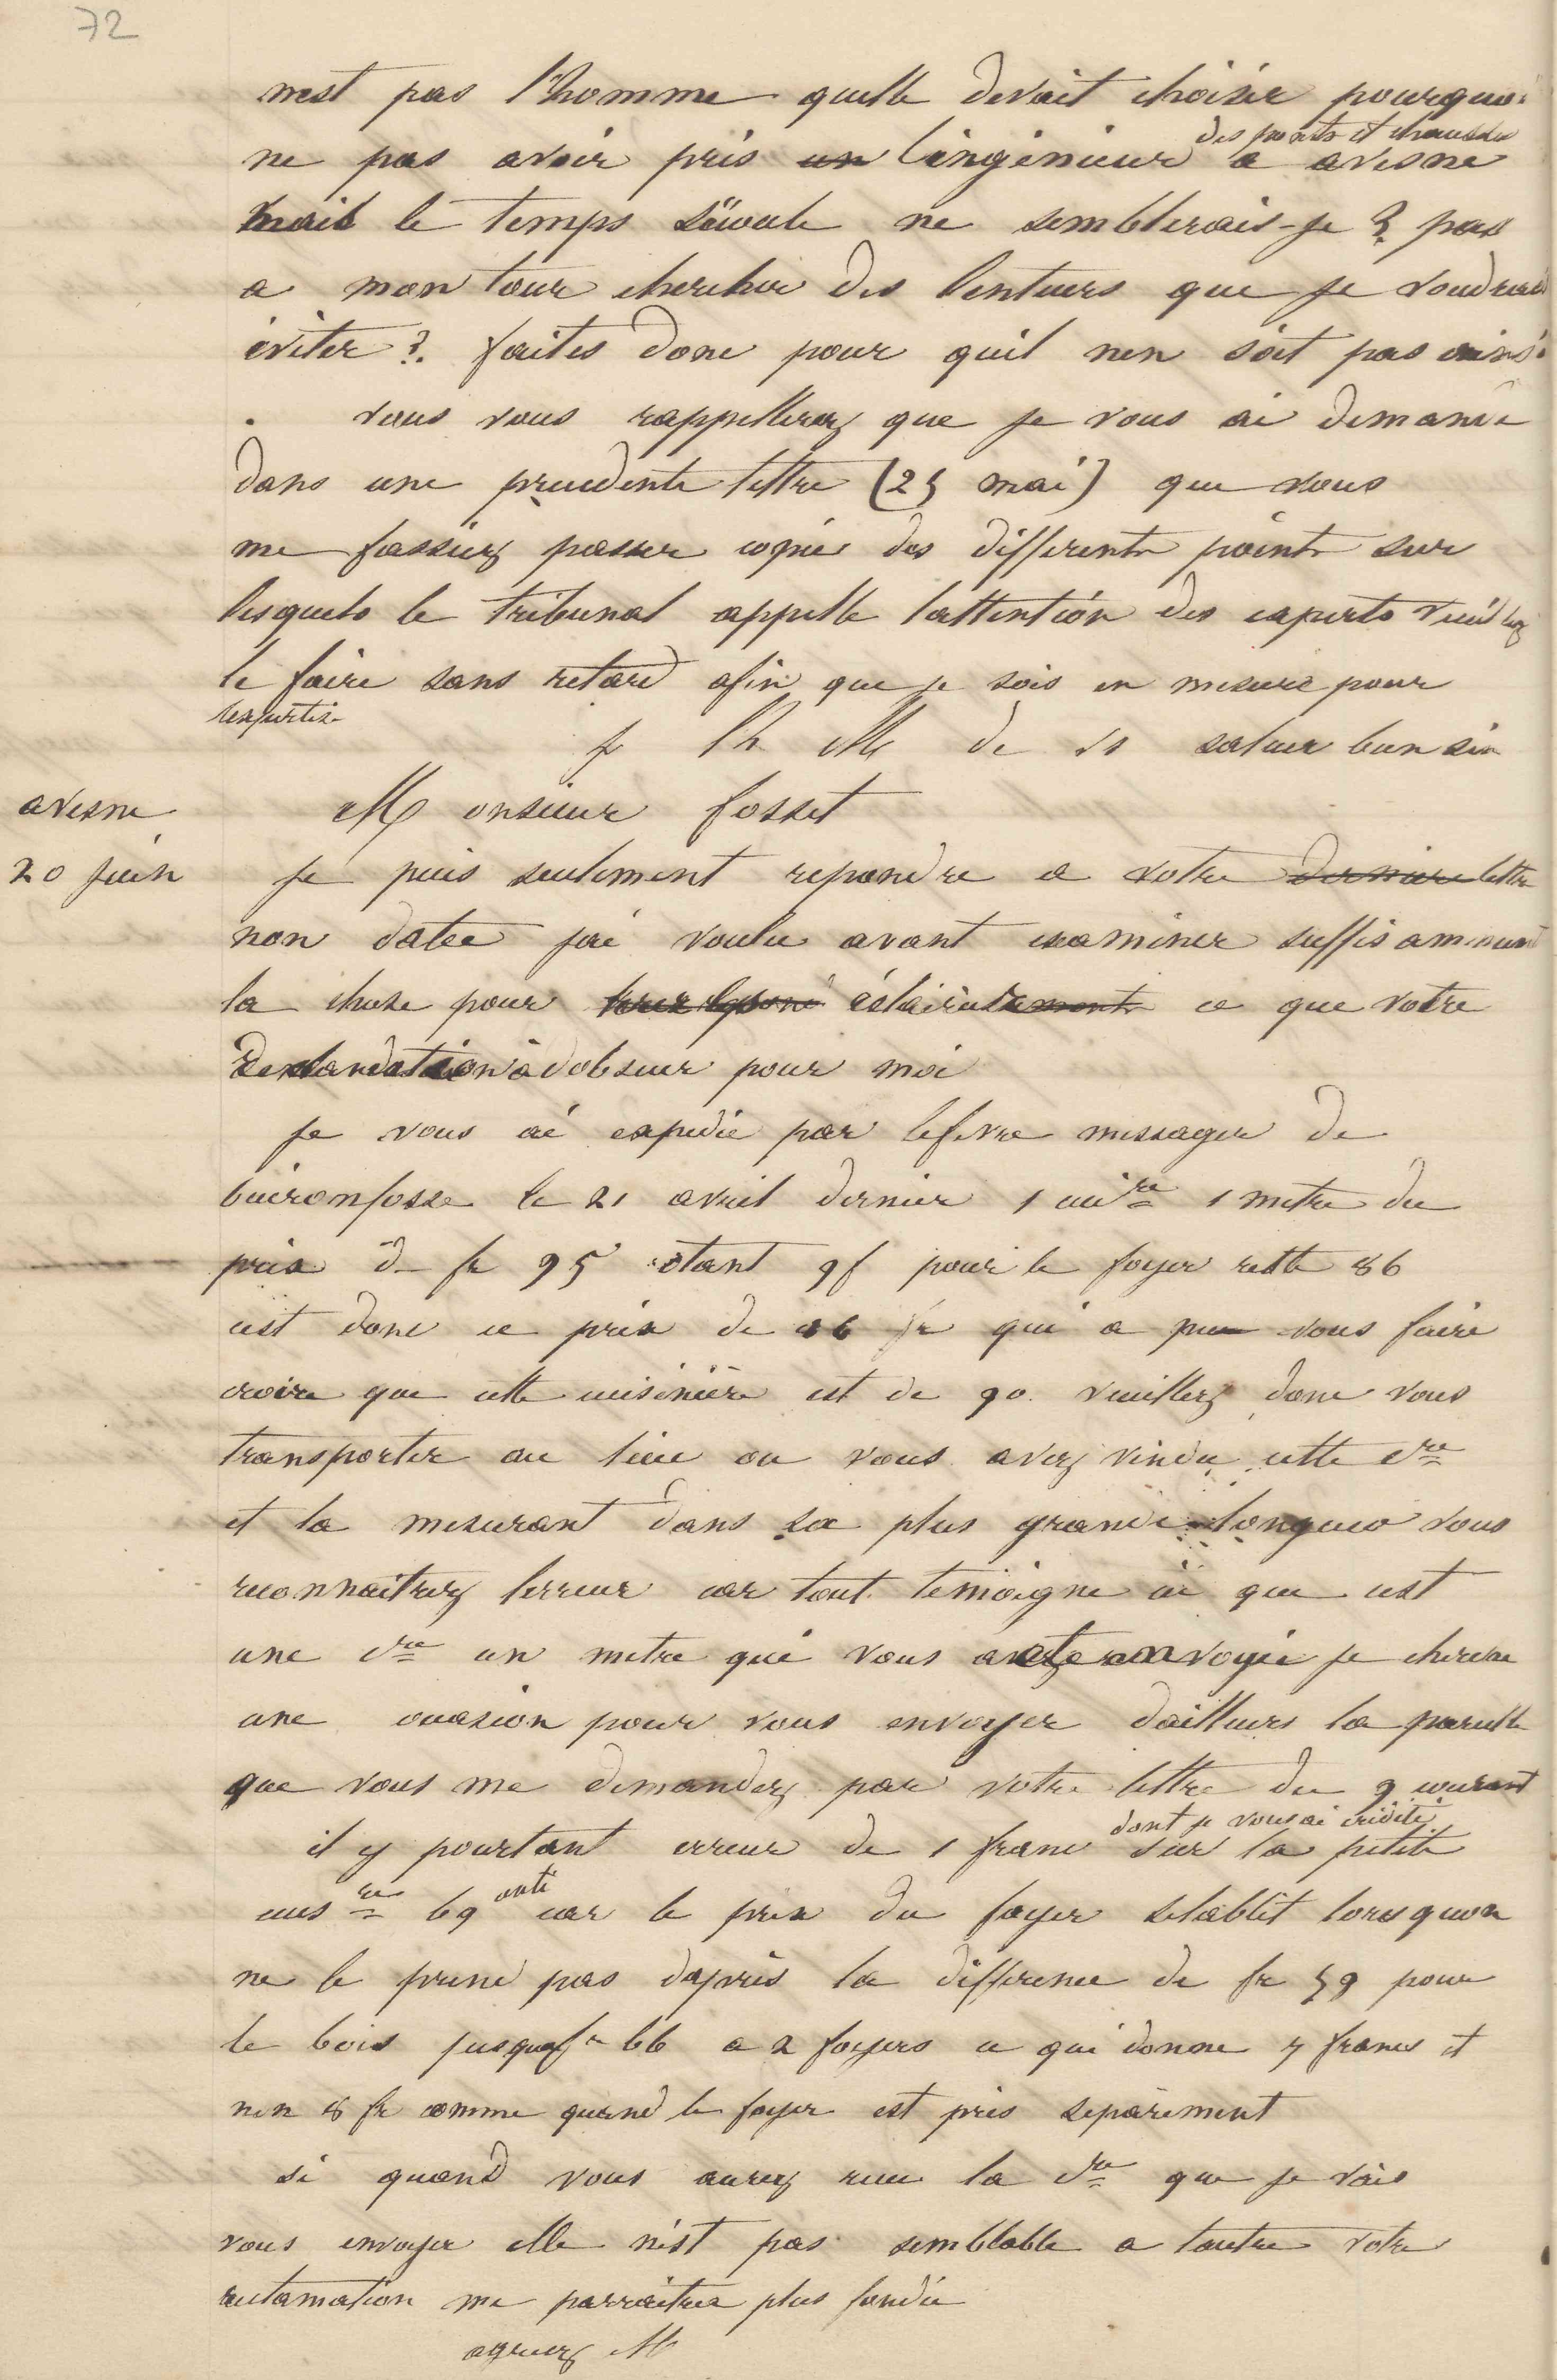 72
nest pas l'homme quelle devait choisir pourquoi
des ponts et chaussées
ne pas avoir pris un lingénieur a avesne
mais le temps sécoule ne semblerais-je ? pas
a mon tour chercher des lenteurs que je voudrais
éviter ? faites donc pour quil nen soit pas ainsi
vous vous rappellerez que je vous ai demandé
dans une precedente lettre (25 mai) que vous
me fassiez passer copie des differents points sur
lesquels le tribunal appelle lattention des experts veuillez
le faire sans retard afin que je sois en mesure pour
lexpertise
j lh M de vs saluer bien sin
avesne
Monsieur fosset
20 juin
je puis seulement repondre a votre derniere lettre
non datee jai voulu avant examiner suffisamment
la chose pour éclaircir ce que votre
a dobscur pour moi
je vous ai expedié par lefevre messager de
buironfosse le 21 avril dernier 1 cuire 1 metre du
prix d fr 95 otant 9f pour le foyer reste 86
cest donc ce prix de 86 fr qui a pu vous faire
croire que cette cuisinière est de 90. veuillez donc vous
transporter au lieu ou vous avez vendu cette dre
et la mesurant dans sa plus grande longueur vous
reconnaitrez lerreur car tout temoigne ici que cest
une dre un metre qui vous a ete envoyée je cherche
une occasion pour vous envoyer dailleurs la pareille
que vous me demandez par votre lettre du 9 courant
dont je vous ai crédité
il y pourtant erreur de 1 franc sur la petite
cuisre 69 cnti car le prix du foyer setablit lorsquon
ne le prend pas daprès la difference de fr 59 pour
le bois jusqua fr 66 a 2 foyers ce qui donne 7 francs et
non 8 fr comme quand le foyer est pris séparement
si quand vous aurez recu la dre que je vais
vous envoyer elle nest pas semblable a lautre votre
reclamation me parraitra plus fondée
agreez M